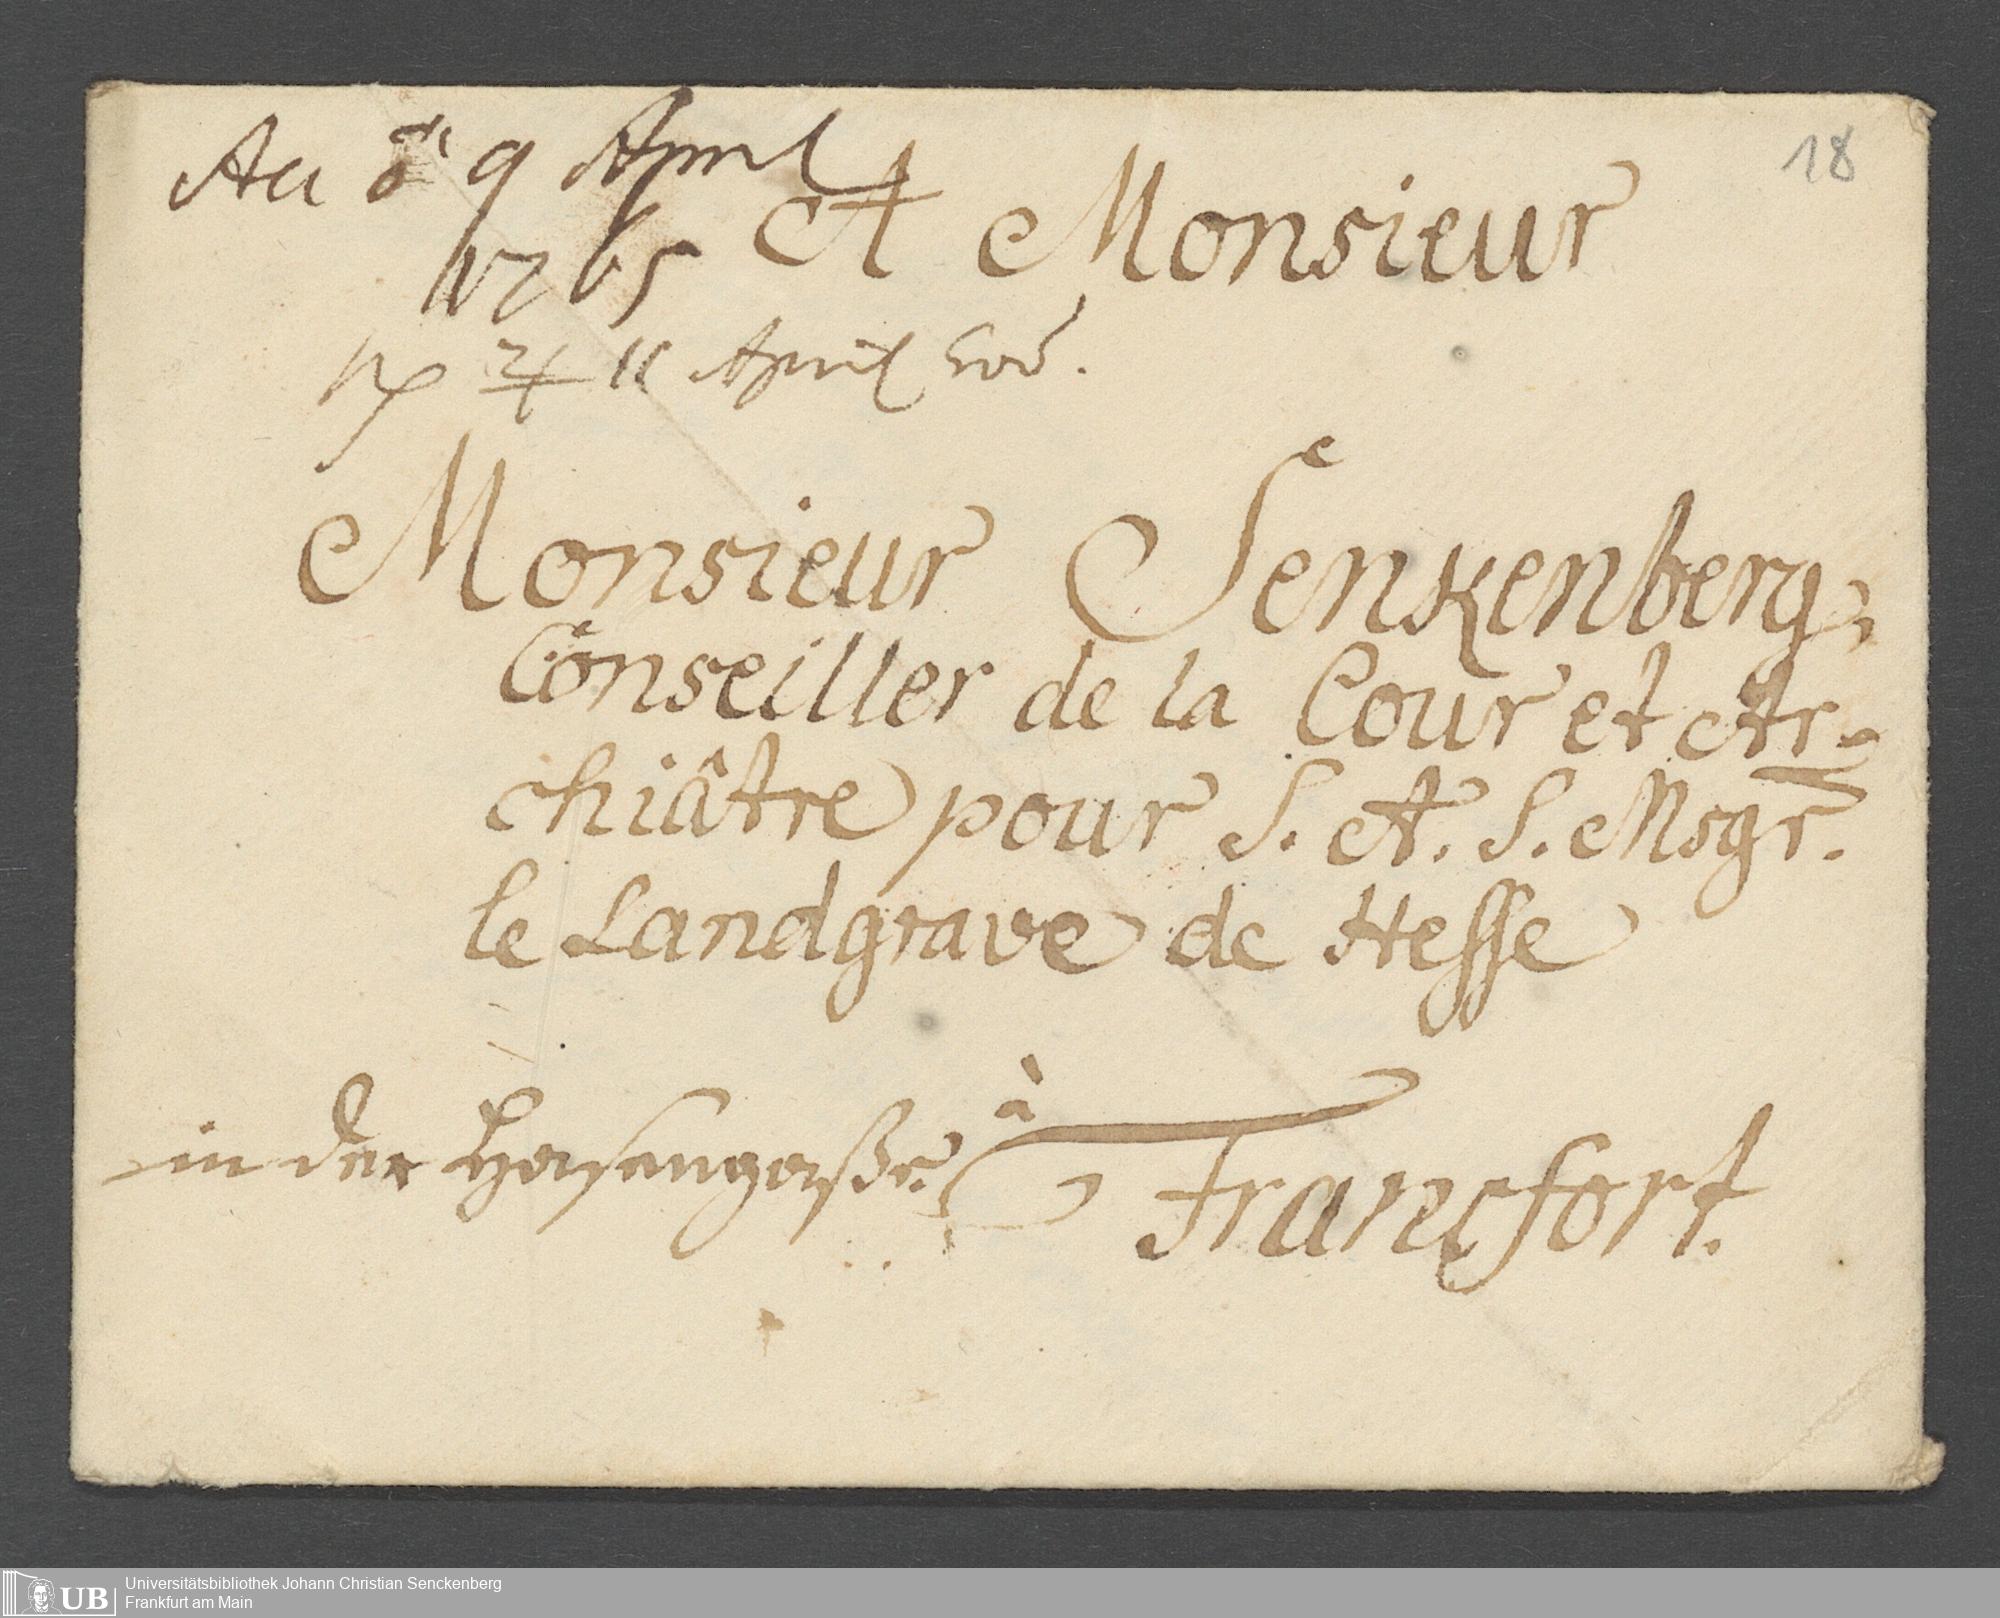 Acc ♂ 9 April
1765
18
A Monsieur
♃ 11 April eod.
Monsieur Senkenberg,
Conseiller de la Cour et Ar-
chiâtre pour S. A. S. Msgr.
le Landgrave de Hesse
à
in der Hasengaße.
Francfort.
UB
Universitätsbibliothek Johann Christian Senckenberg
Frankfurt am Main